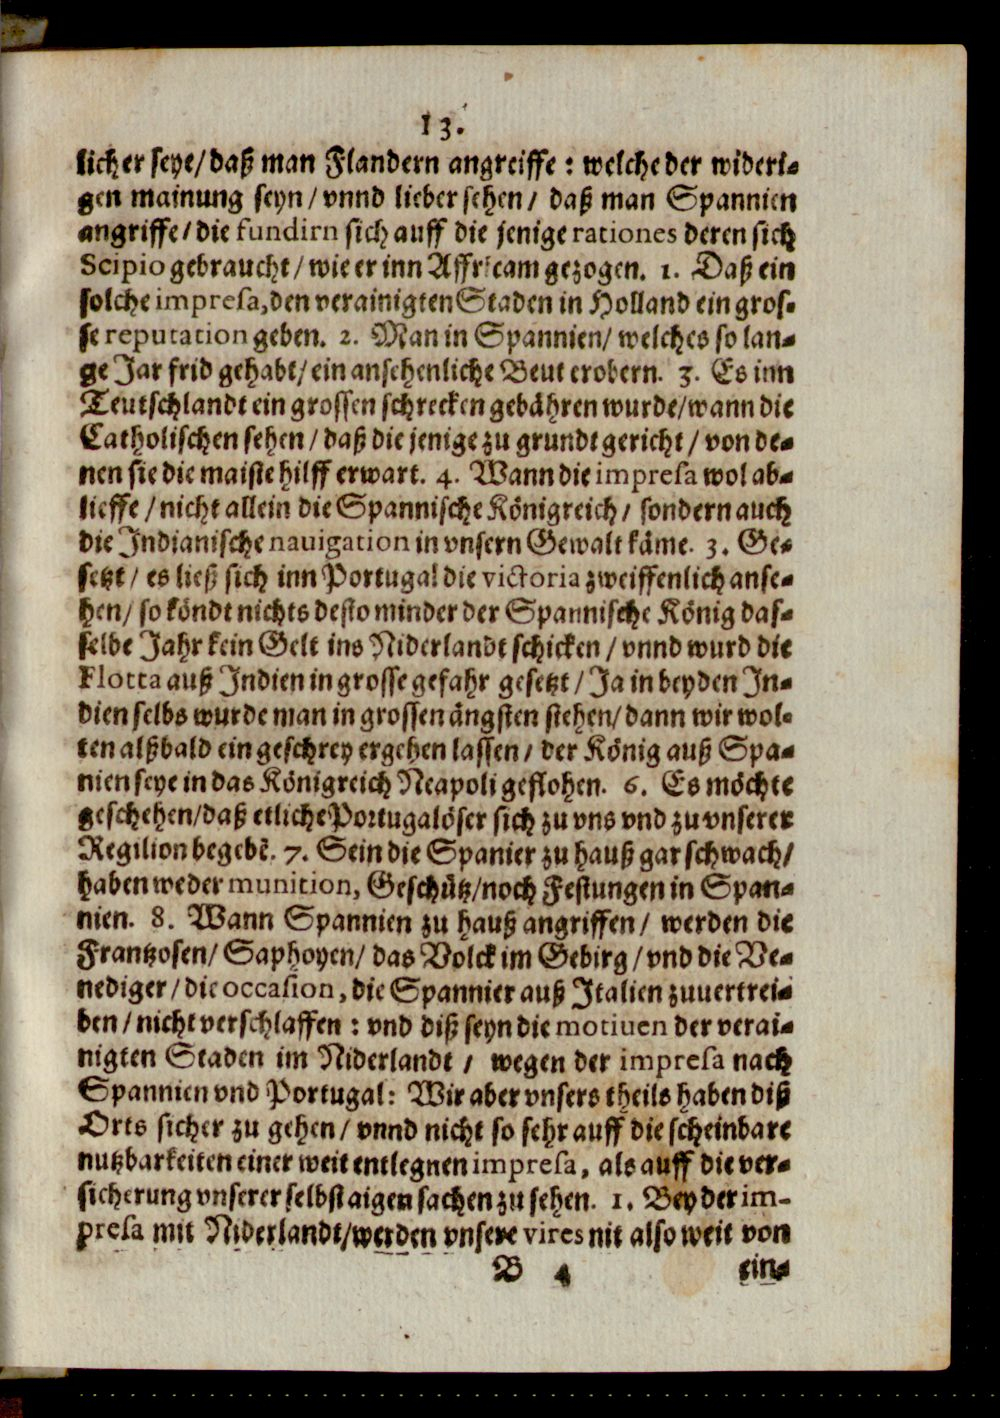 13.
licher seye/daß man Flandern angreiffe: welche der wideri-
gen mainung seyn/vnnd lieber sehen/ daß man Spannien
angriffe/die fundirn sich auff die jenige rationes deren sich
Scipio gebraucht/wie er inn Affricam gezogen. 1. Daß ein
solche impresa,den verainigten Staden in Holland ein gros-
se reputation geben. 2. Man in Spannien/welches so lan-
ge Jar frid gehabt/ein ansehenliche Beut erobern. 3. Es inn
Teutschlandt ein grossen schrecken gebähren wurde/wann die
Catholischen sehen/daß die jenige zu grundt gericht/von de-
nen sie die maiste hilff erwart. 4. Wann die impresa wol ab-
lieffe/nicht allein die Spannische Königreich/ sondern auch
die Indianische nauigation in vnsern Gewalt käme. 3. Ge-
setzt/es ließ sich inn Portugal die victoria zweiffenlich anse-
hen/so köndt nichts desto minder der Spannische König das-
selbe Jahr kein Gelt ins Niderlandt schicken/vnnd wurd die
Flotta auß Indien in grosse gefahr gesetzt/Ja in beyden In-
dien selbs wurde man in grossen ängsten stehen/dann wir wol-
ten alßbald ein geschrey ergehen lassen/der König auß Spa-
nien seye in das Königreich Neapoli geflohen. 6. Es möchte
geschehen/daß etliche Portugalöser sich zu vns vnd zu vnserer
Regilion begebē. 7. Sein die Spanier zu hauß gar schwach/
haben weder munition, Geschütz/noch Festungen in Span-
nien. 8. Wann Spannien zu hauß angriffen/ werden die
Frantzosen/Saphoyen/das Volck im Gebirg/vnd die Ve-
nediger/die occasion, die Spannier auß Italien zuuertrei-
ben/nicht verschlaffen: vnd diß seyn die motiuen der verai-
nigten Staden im Niderlandt/ wegen der impresa nach
Spannien vnd Portugal: Wir aber vnsers theils haben diß
Orts sicher zu gehen/vnnd nicht so sehr auff die scheinbare
nutzbarkeiten einer weit entlegnen impresa, als auff die ver-
sicherung vnserer selbst aigen sachen zu sehen. 1. Bey der im-
presa mit Niderlandt/werden vnsere vires nit also weit von
B 4 ein-